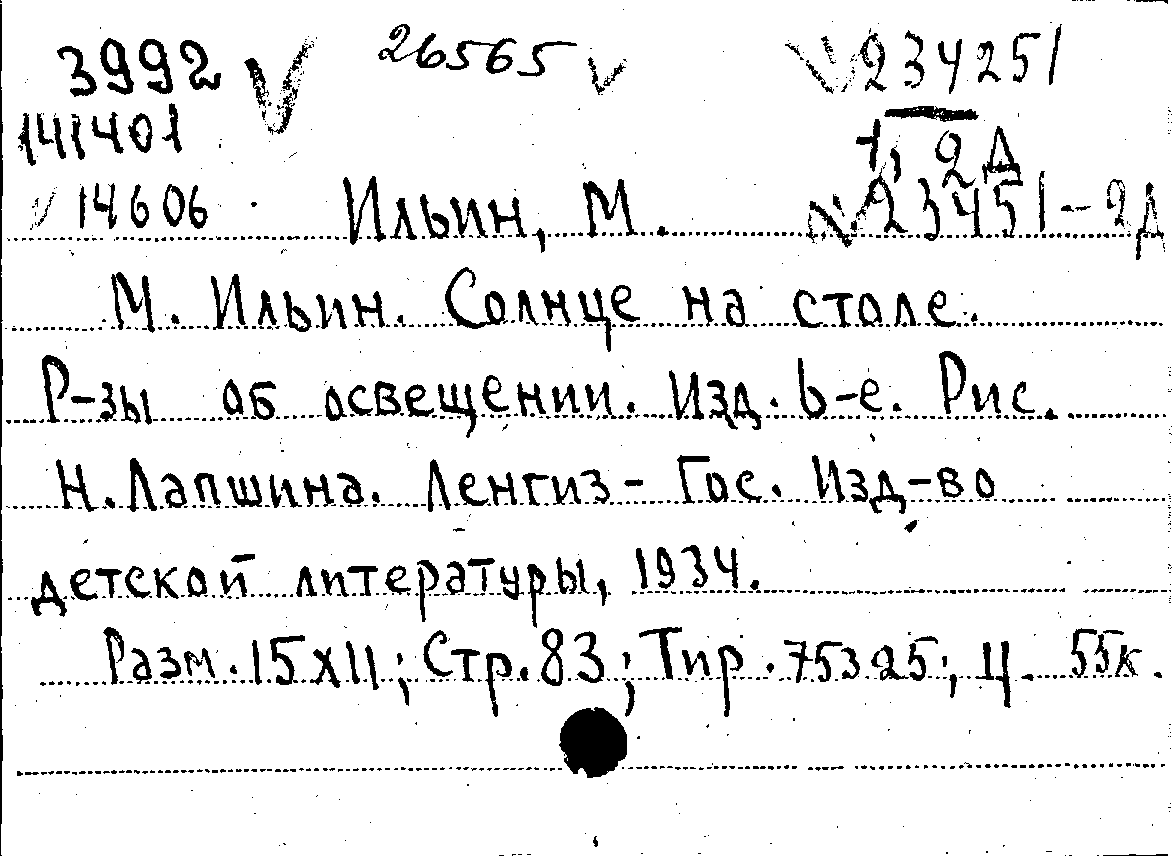 3992 26565 234251
141401 1, 2Д
14606 Ильин, М. 23451-2Д
М. Ильин. Солнце на столе.
Р-зы об освещении. Изд. 6-е. Рис.
Н. Лапшина. Ленгиз - Гос. Изд-во
детской литературы, 1934.
Разм. 15х11; Стр. 83; Тир. 75325; Ц. 55к.